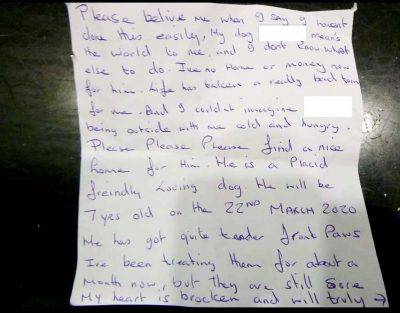 Please belive me when I say I havent
done this easily, My dog means
the world to me, and I dont know what
else to do. Ive no Home or money now
for him. Life has taken a really bad turn
for me. And I couldnt imagine
being outside with me cold and hungry.
Please Please Please find a nice
home for Him. He is a Placid
freindly Loving dog He will be
7 yrs old on the 22ND MARCH 2020
He has got quite tender front Paws
Ive been treating them for about a
Month now, but they are still Sore
My heart is brocken and will truly →